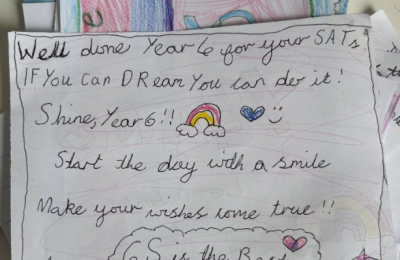 Well done Year 6 for your SATs
IF You Can DReam You can do it!
Shine, Year 6!!
Start the day with a smile
Make your wishes come true!!
is the Best